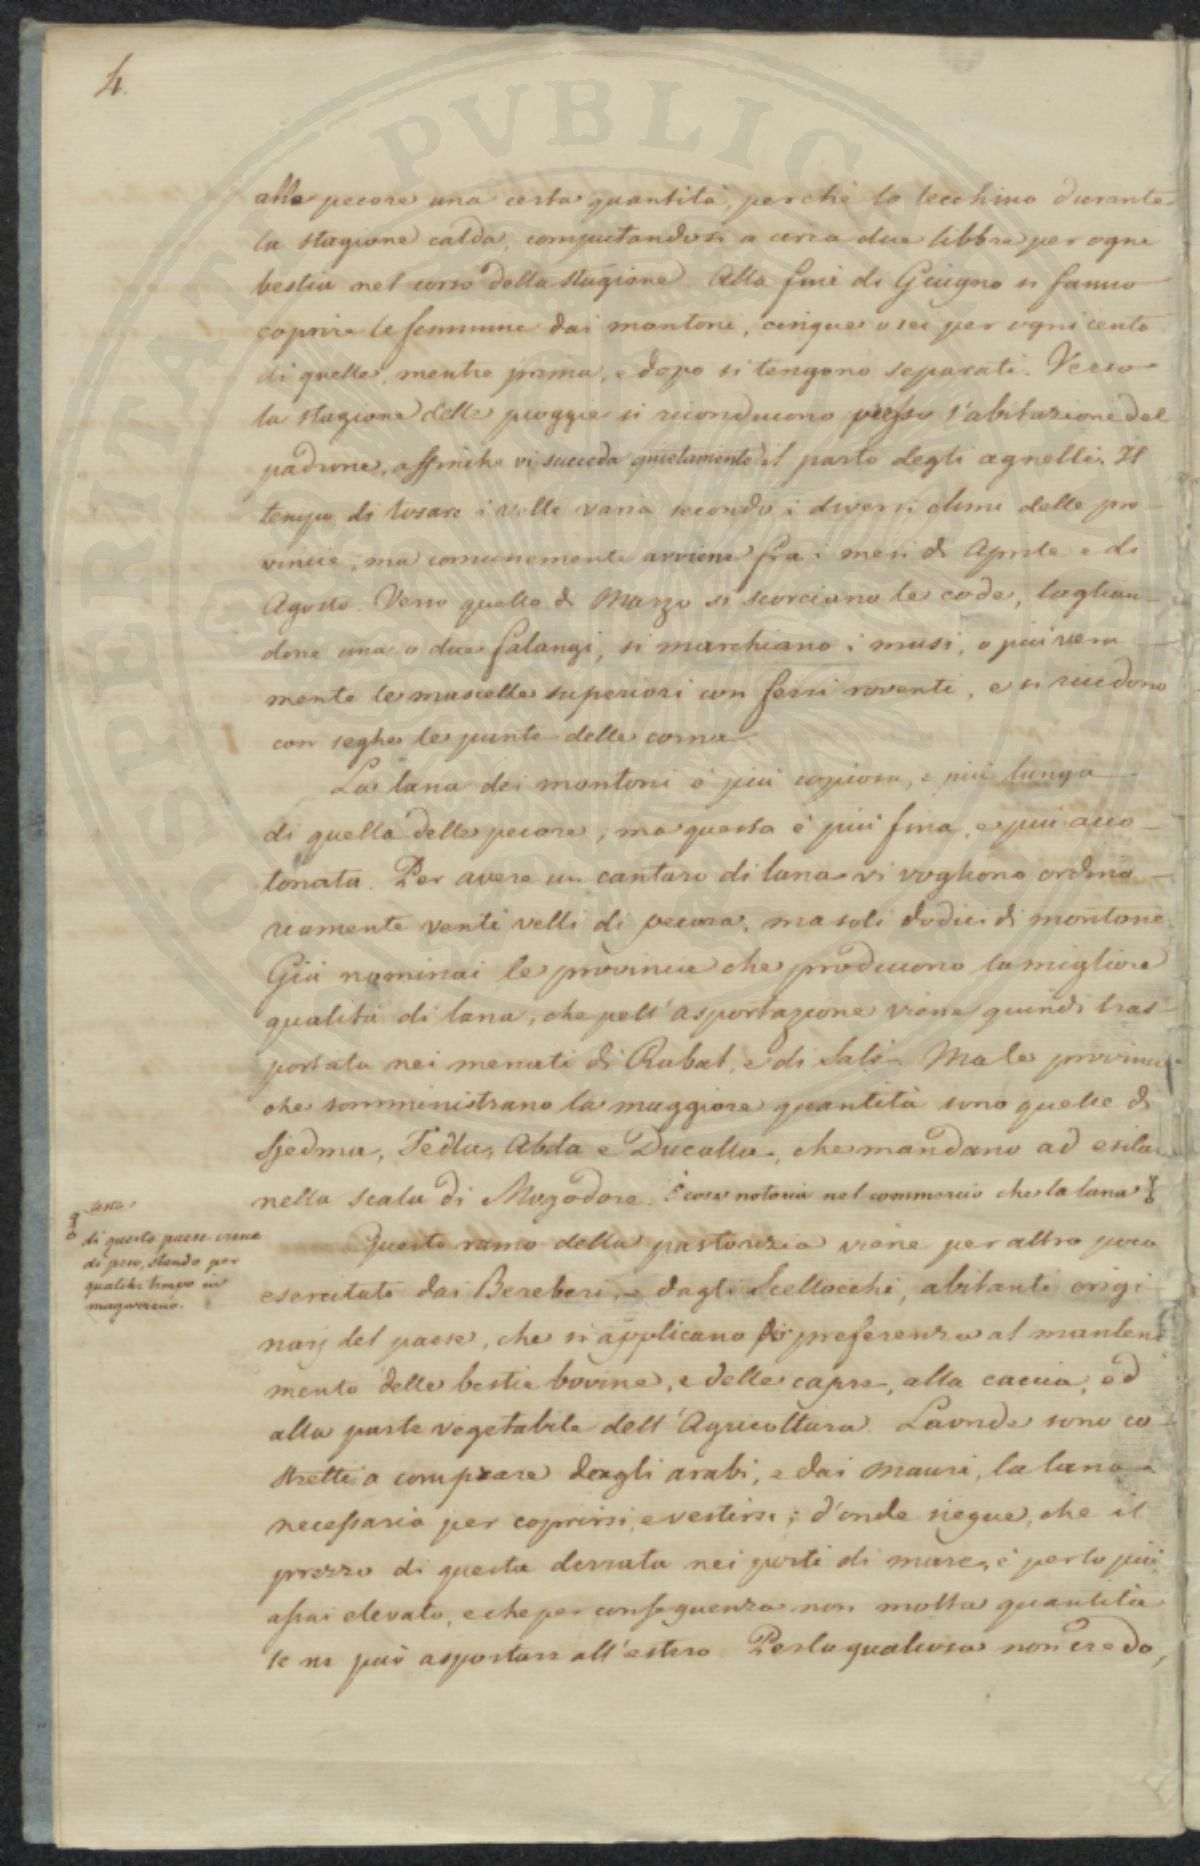 4.
alle pecore una certa quantità, perchè lo lecchino durante
la stagione calda, computandosi a circa due libbre per ogni
bestia nel corso della stagione. Alla fine di Giugno si fanno
coprire le femmine dai montoni, cinque o sei per ogni cento
di quelle, mentre prima, e dopo si tengono separati. Verso
la stagione delle pioggie si riconducono presso l'abitazione del
padrone, affinchè vi succeda quietamente il parto degli agnelli. Il
tempo di tosare i velli varia secondo i diversi climi delle pro-
vincie; ma comunemente avviene fra i mesi di Aprile e di
Agosto. Verso quello di Marzo si scorciano le code, taglian-
done una o due falangi, si marchiano i musi, o più vera-
mente le mascelle superiori con ferri roventi, e si recidono
con seghe le punte delle corna.
La lana dei montoni è più copiosa, e più lunga
di quella delle pecore, ma questa è più fina, e più acco-
tonata. Per avere un cantaro di lana vi vogliono ordina-
riamente venti velli di pecora, ma soli dodici di montone.
Già nominai le provincie che producono la migliore
qualità di lana, che pell'asportazione viene quindi tras-
portata nei mercati di Rabat, e di Salè. Ma le provincie
che somministrano la maggiore quantità sono quelle di
Sjedma, Tedla, Abda e Ducalla, che mandano ad esitar
nella Scala di Mogodore. È cosa notoria nel commercio che la lana
di questo paese cresce
di peso, stando per
qualche tempo in
magazzeno.
Questo ramo della pastorizia viene per altro poco
esercitato dai Bereberi, e dagli Scellocchi, abitanti origi-
narj del paese, che si applicano di preferenza al manteni-
mento delle bestie bovine, e delle capre, alla caccia, ed
alla parte vegetabile dell'Agricoltura. Laonde sono co-
stretti a comprare dagli arabi, e dai mauri, la lana
necessaria per coprirsi, e vestirsi; d'onde siegue, che il
prezzo di questa derrata nei porti di mare, è per lo più
assai elevato, e che per conseguenza non molta quantità
se ne può asportare all'estero. Per la qual cosa non credo,